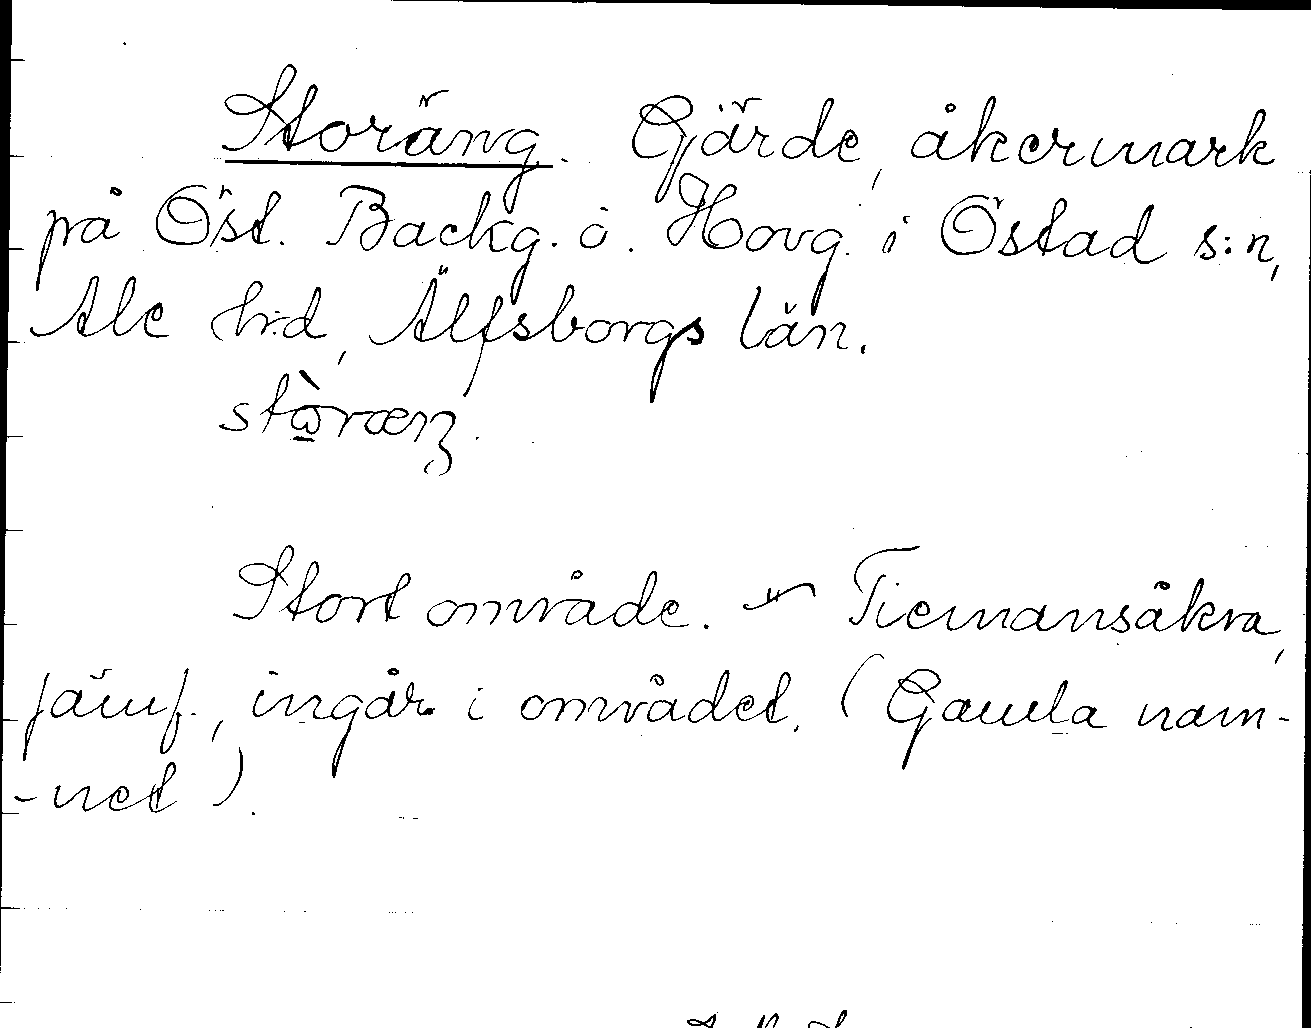 Storäng. Gärde, åkermark
på Öst. Backg. o. Hovg. i Östad s:n,
Ale h:d, Älfsborgs län.
stòræŋ.
Stort område. – Tiemansåkra,
jämf., ingår i området. (Gamla nam-
-net).